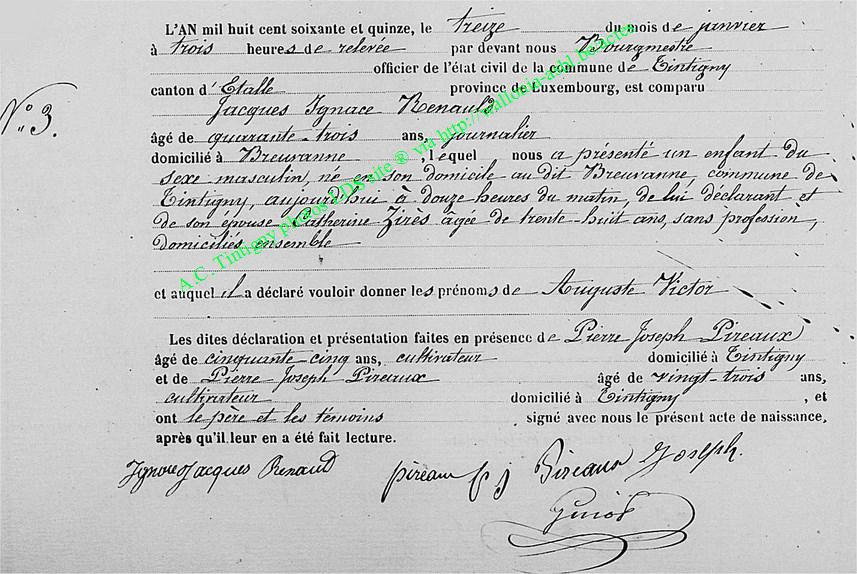 L'AN mil huit cent soixante et quinze, le treize du mois de janvier
à trois heures de relevée par devant nous Bourgmestre
officier de l'état civil de la commune de Tintigny
canton d'Etalle province de Luxembourg, est comparu
N° 3. Jacques Ignace Renauld
âgé de quarante-trois ans, journalier
domicilié à Breuvanne, lequel nous a présenté un enfant du
sexe masculin, né en son domicile au dit Breuvanne, commune de
Tintigny, aujourd'hui à douze heures du matin, de lui déclarant et
de son épouse Catherine Zirès âgée de trente-huit ans, sans profession,
domiciliés ensemble
et auquel il a déclaré vouloir donner les prénoms de Auguste Victor
Les dites déclaration et présentation faites en présence de Pierre Joseph Pireaux
âgé de cinquante-cinq ans, cultivateur domicilié à Tintigny
et de Pierre Joseph Pireaux âgé de vingt-trois ans,
cultivateur domicilié à Tintigny, et
ont le père et les témoins signé avec nous le présent acte de naissance,
après qu'il leur en a été fait lecture.
Jacques Renaud pireaux pj Pireaux Joseph.
A.C. Tintigny photos LDS site ® via http://wallonia-asbl.be/actes